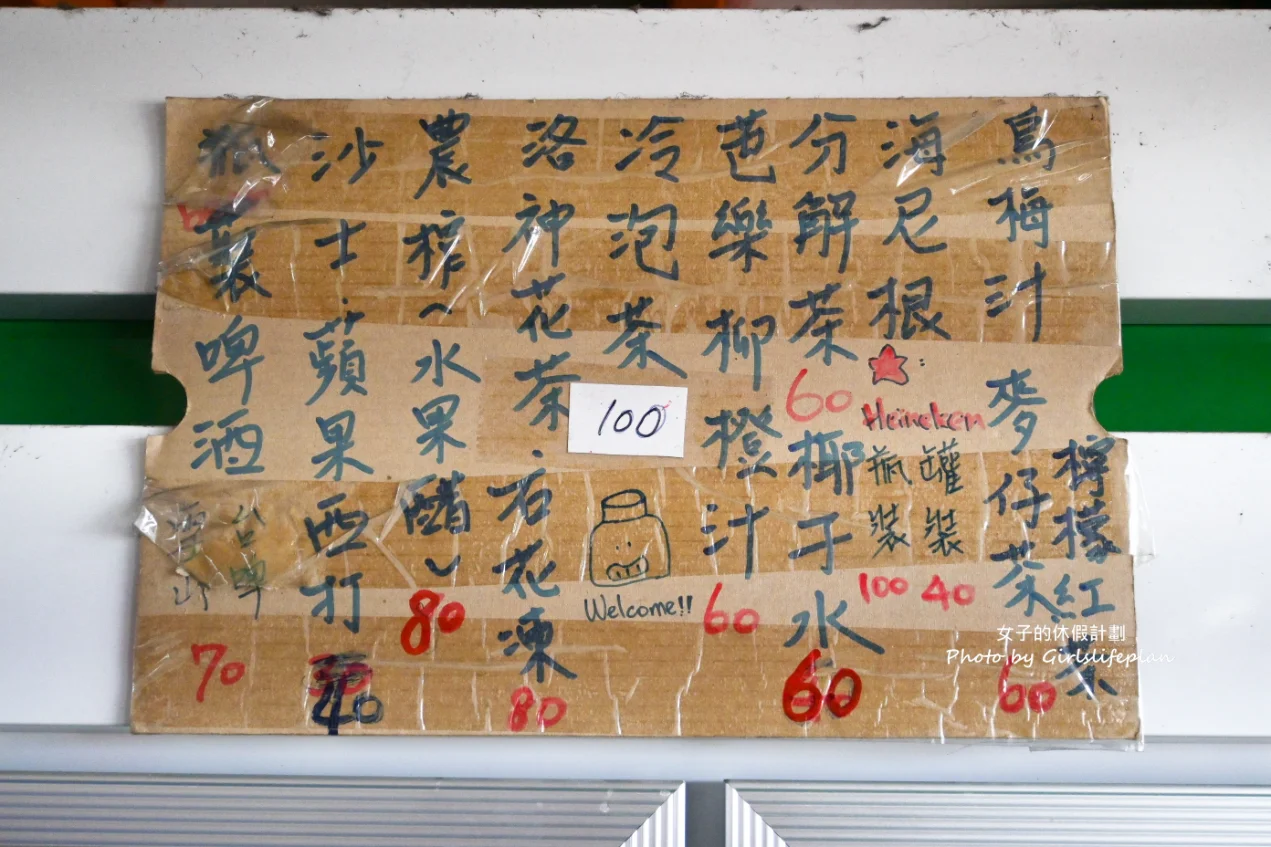 烏梅汁 麥仔茶
檸檬紅茶
60
海尼根
Heineken
罐裝
40
瓶裝
100
分解茶
60
椰子水
60
芭樂柳橙汁
60
冷泡茶
100
Welcome!!
洛神花茶、石花凍
80
農榨~水果醋~
80
沙士、蘋果西打
40
瓶裝啤酒
台啤
70
女子的休假計劃
Photo by Girlslifeplan